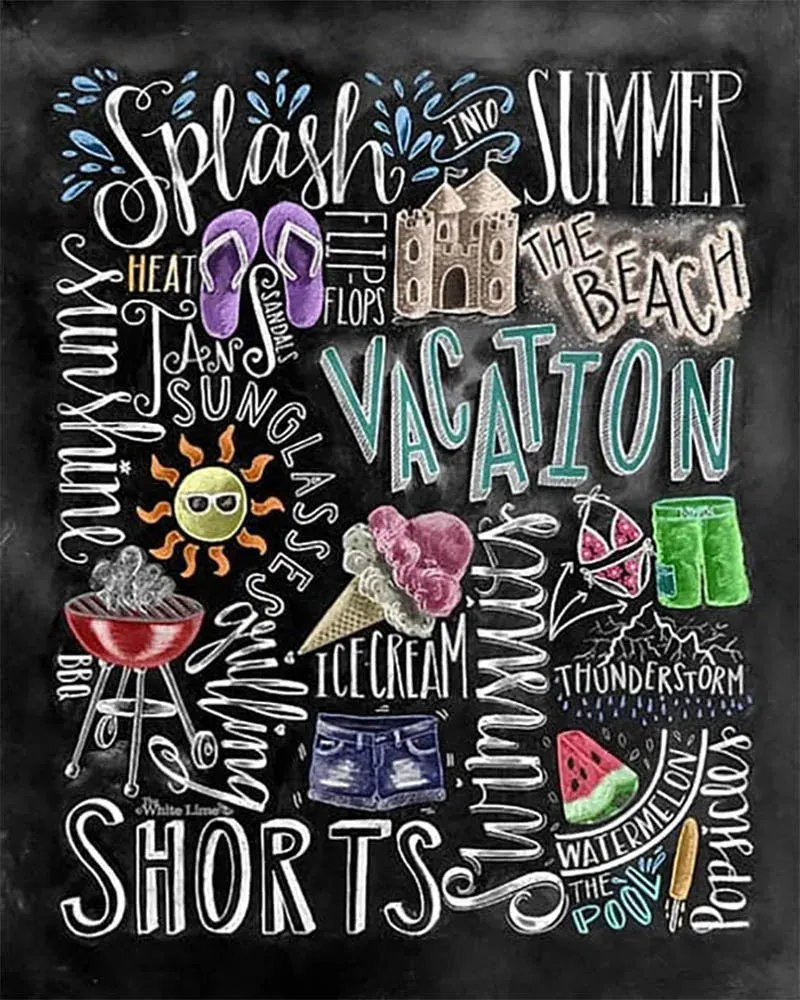 Splash
INTO
SUMMER
sunshine
HEAT
FLIP
FLOPS
SANDALS
THE
BEACH
TANS
SUNGLASSES
VACATION
BBQ
grilling
ICE CREAM
swimsuits
THUNDERSTORM
The
White Lime
SHORTS
WATERMELON
THE
POOL
Popsicles